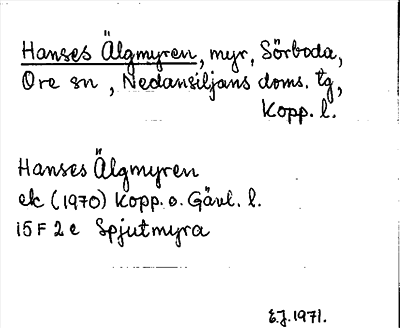 Hanses Älgmyren, myr, Sörboda,
Ore sn, Nedansiljans doms. tg,
Kopp. l.
Hanses Älgmyren
ek (1970) Kopp. o. Gävl. l.
15F 2e Spjutmyra
E.J. 1971.